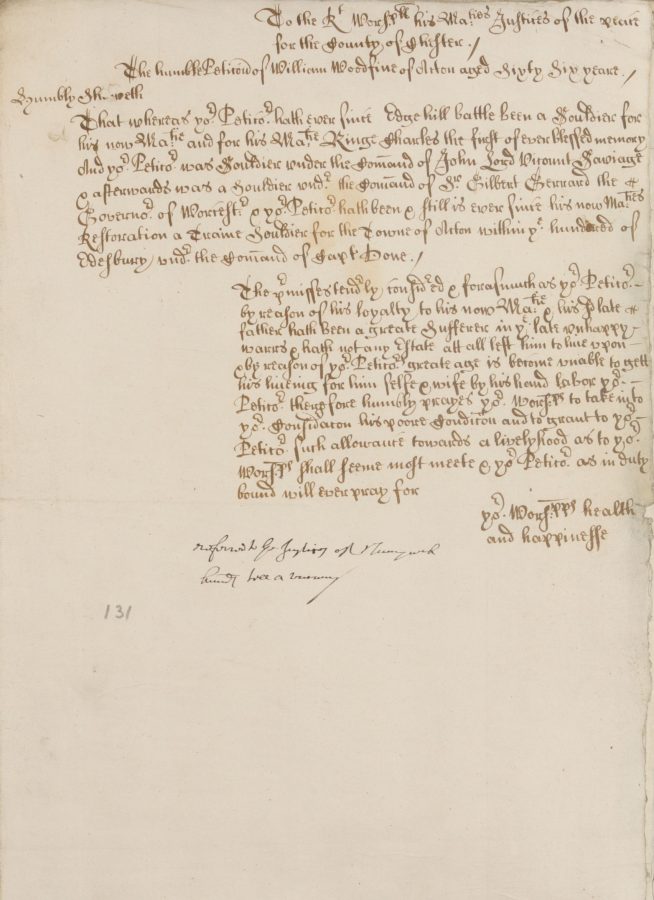 To the Rt Worsp:ll his Ma:ties Justices of the peace
for the County of Chester ./
The humble Peticion of William Woodfine of Acton aged Sixty Six yeare ./
Humbly Sheweth
That whereas yo:r Petico:r hath ever since Edgehill battle been a Souldier for
his now Ma:tie and for his Ma:tie Kinge Charles the first of ever blessed memory
And yo:r Petico:r was Souldier under the Com̄and of John Lord Vicount Saviage
& afterwards was a Souldier und:r the Com̄and of S:r Gilbert Gerrard the
Governo:r of Worcest:r & yo:r Petico:r hath been & still is ever since his now Ma:ties
Restoration a Traine Souldier for the Towne of Acton within y:e hundred of
Edesbury und:r the Com̄and of Capt Done ./
The p:rmisses tend:rly consid:red & forasmuch as yo:r Petico:r –
by reason of his loyalty to his now Ma:tie & his late
father hath been a greate Sufferer in y:e late unhappy –
warrs & hath not any Estate att all left him to live upon –
& by reason of yo:r Petico:rs greate age is become unable to gett
his liveing for him selfe & wife by his hand labor yo:r –
Petico:r therefore humbly prayes yo:r Worsp:ps to take into
yo:r Consideracon his poore Condicon and to grant to yo:r –
Petico:r such allowance towards a livelyhood as to yo:r
Worsp:ps shall seeme most meete & yo:r Petico:r as in duty
bound will ever pray for
yo:r Worsp:pps health
and happinesse
referred to the Justices of
hundr
131